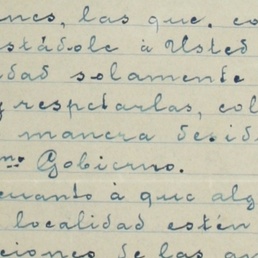 ones, las que. co
stádole à Usted
idad solamente
y respetarlas, col
manera decid
mo Gobierno.
cuanto à que alg
localidad estén
ciones de las qu